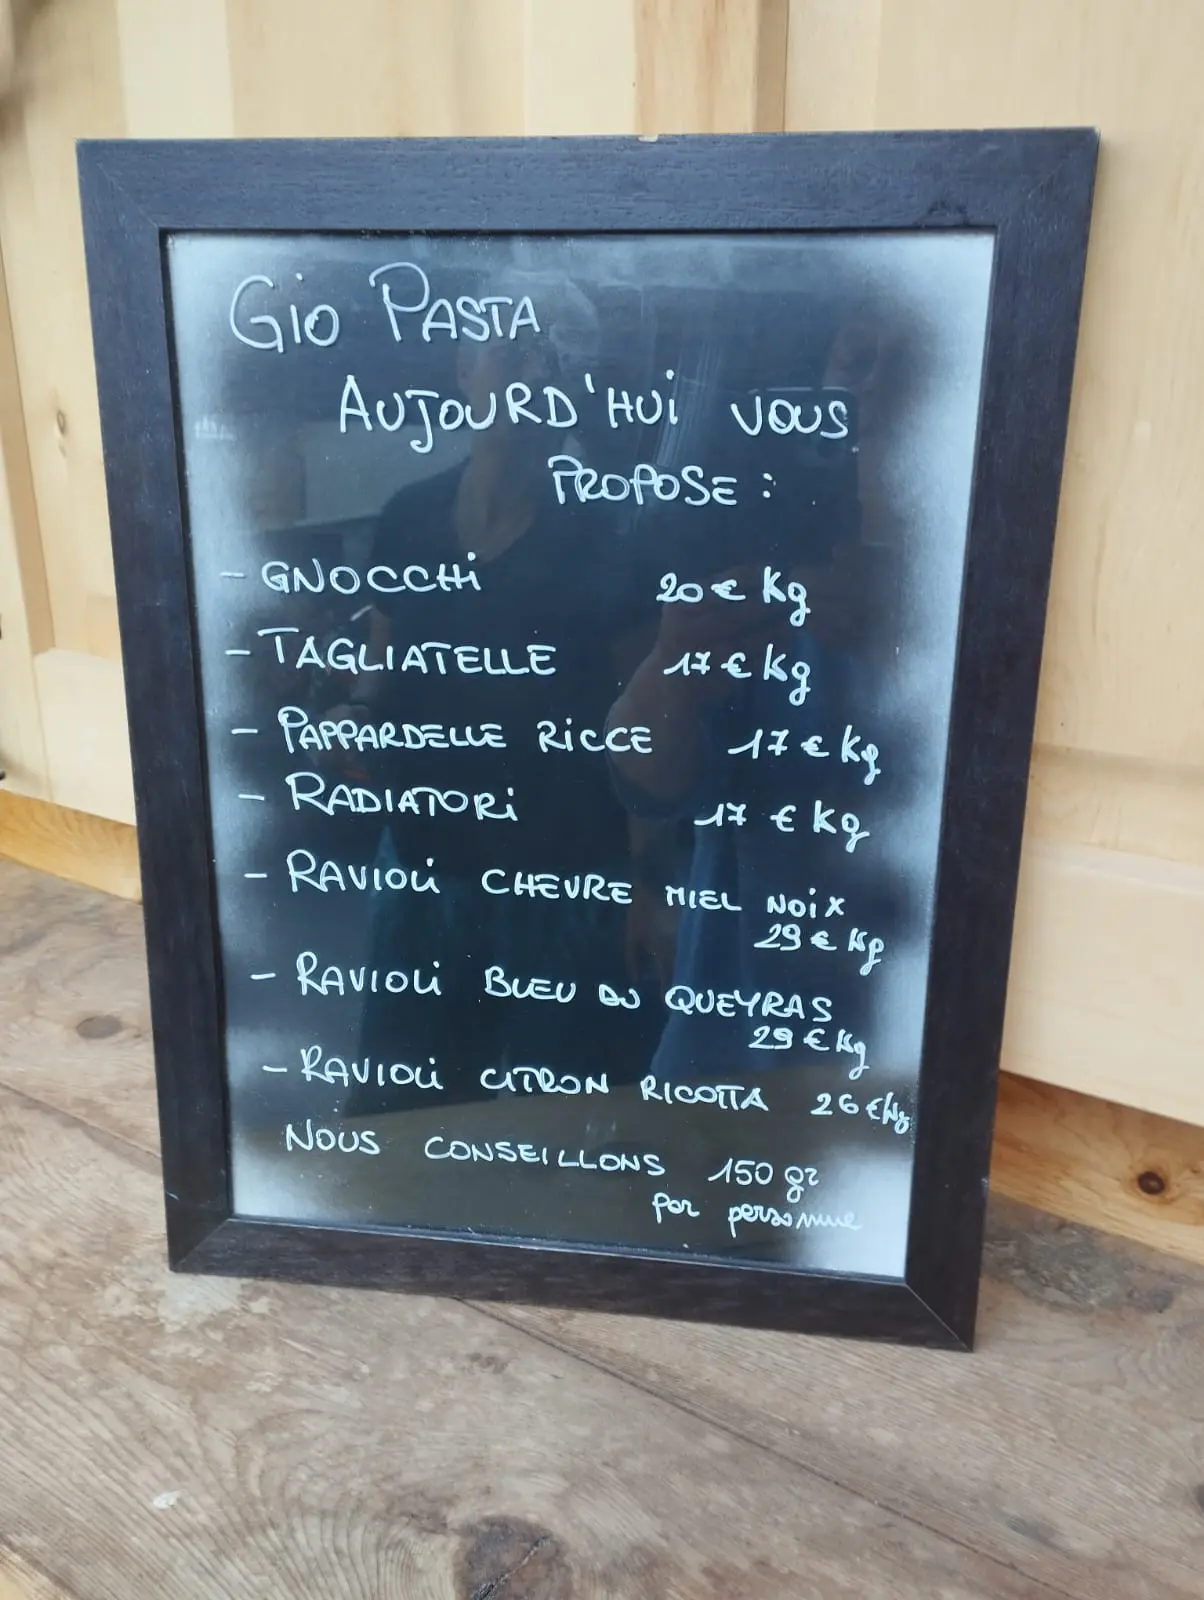 Gio Pasta
Aujourd'hui vous
propose :
- Gnocchi 20 € Kg
- Tagliatelle 17 € Kg
- Pappardelle Ricce 17 € Kg
- Radiatori 17 € Kg
- Ravioli chevre miel noix
29 € Kg
- Ravioli Bleu du Queyras
29 € Kg
- Ravioli citron ricotta 26 €/Kg
Nous conseillons 150 gr
par personne